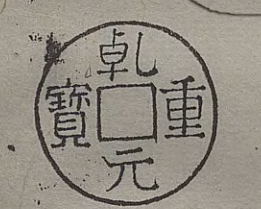 乹元重寶